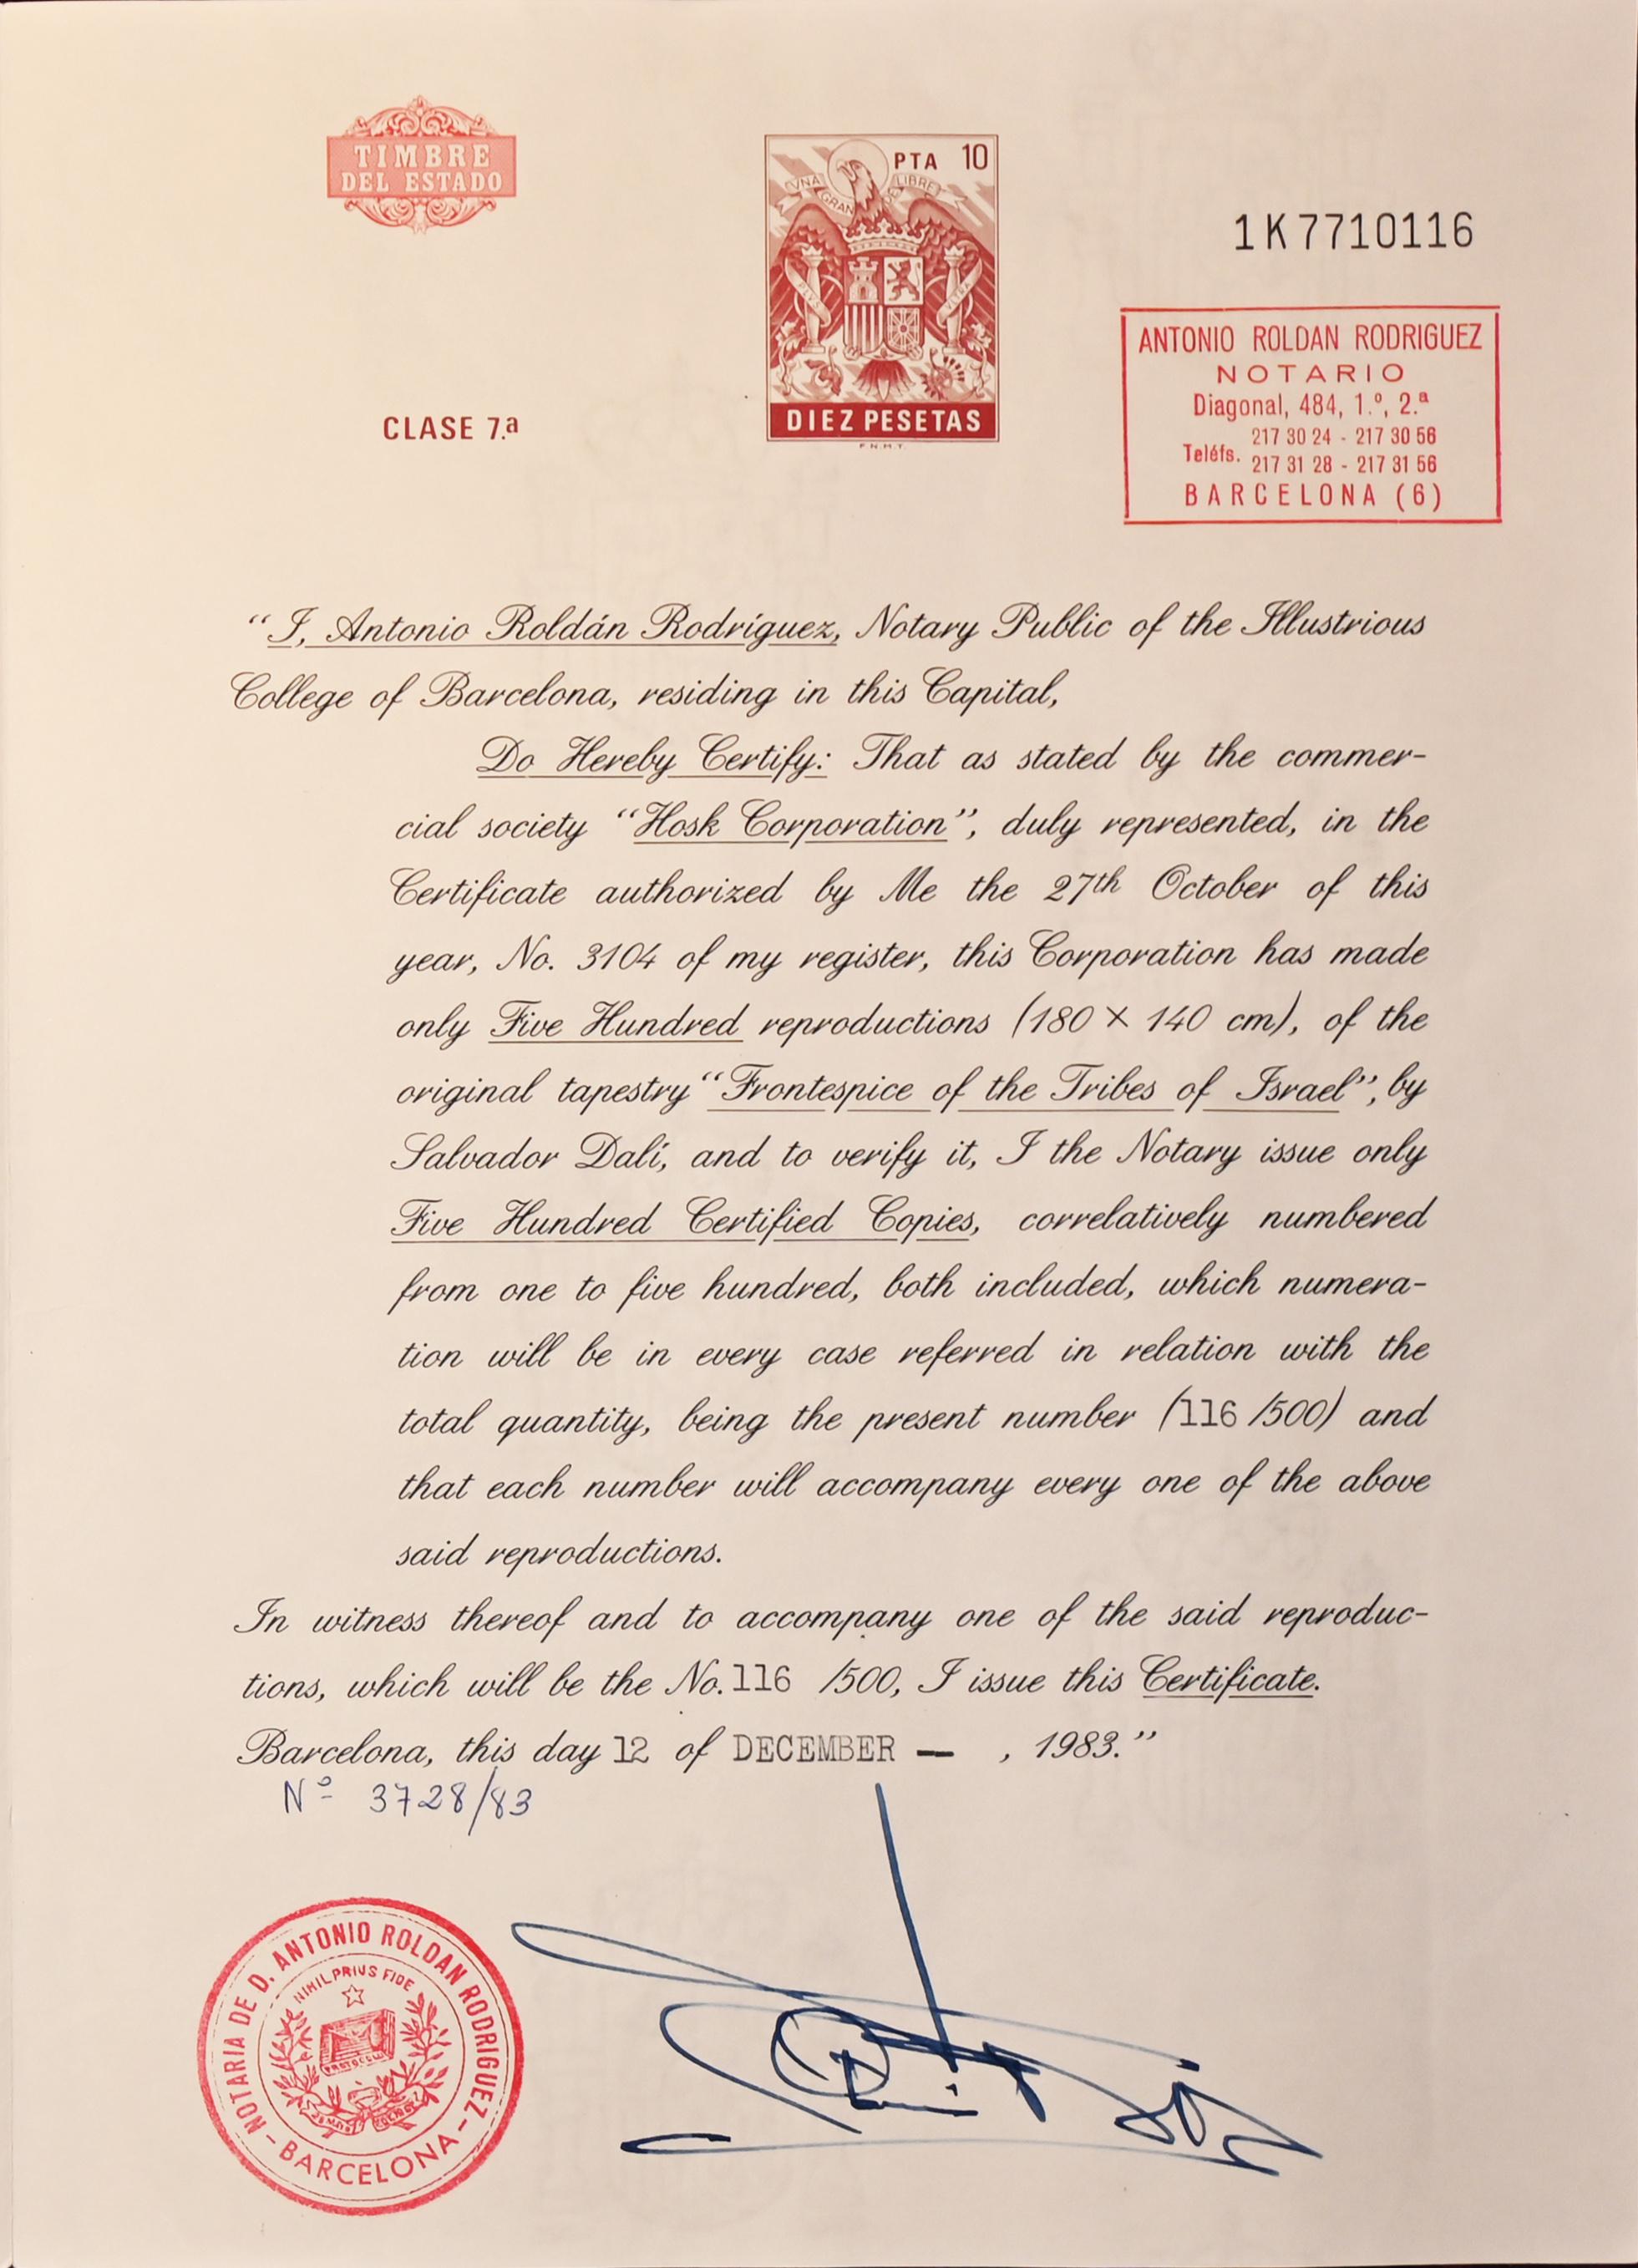 TIMBRE
DEL ESTADO
PTA 10
UNA
GRANDE
LIBRE
PLUS
ULTRA
DIEZ PESETAS
F.N.M.T.
1K7710116
ANTONIO ROLDAN RODRIGUEZ
NOTARIO
Diagonal, 484, 1.º, 2.ª
217 30 24 - 217 30 56
Teléfs.
217 31 28 - 217 31 56
BARCELONA (6)
CLASE 7.ª
“I, Antonio Roldán Rodríguez, Notary Public of the Illustrious
College of Barcelona, residing in this Capital,
Do Hereby Certify: That as stated by the commer-
cial society “Hosk Corporation”, duly represented, in the
Certificate authorized by Me the 27th October of this
year, No. 3104 of my register, this Corporation has made
only Five Hundred reproductions (180 × 140 cm), of the
original tapestry “Frontespice of the Tribes of Israel”, by
Salvador Dalí, and to verify it, I the Notary issue only
Five Hundred Certified Copies, correlatively numbered
from one to five hundred, both included, which numera-
tion will be in every case referred in relation with the
total quantity, being the present number (116 /500) and
that each number will accompany every one of the above
said reproductions.
In witness thereof and to accompany one of the said reproduc-
tions, which will be the No. 116 /500, I issue this Certificate.
Barcelona, this day 12 of DECEMBER — , 1983.”
Nº 3728/83
NOTARIA DE D. ANTONIO ROLDAN RODRIGUEZ
- BARCELONA -
NIHIL PRIUS FIDE